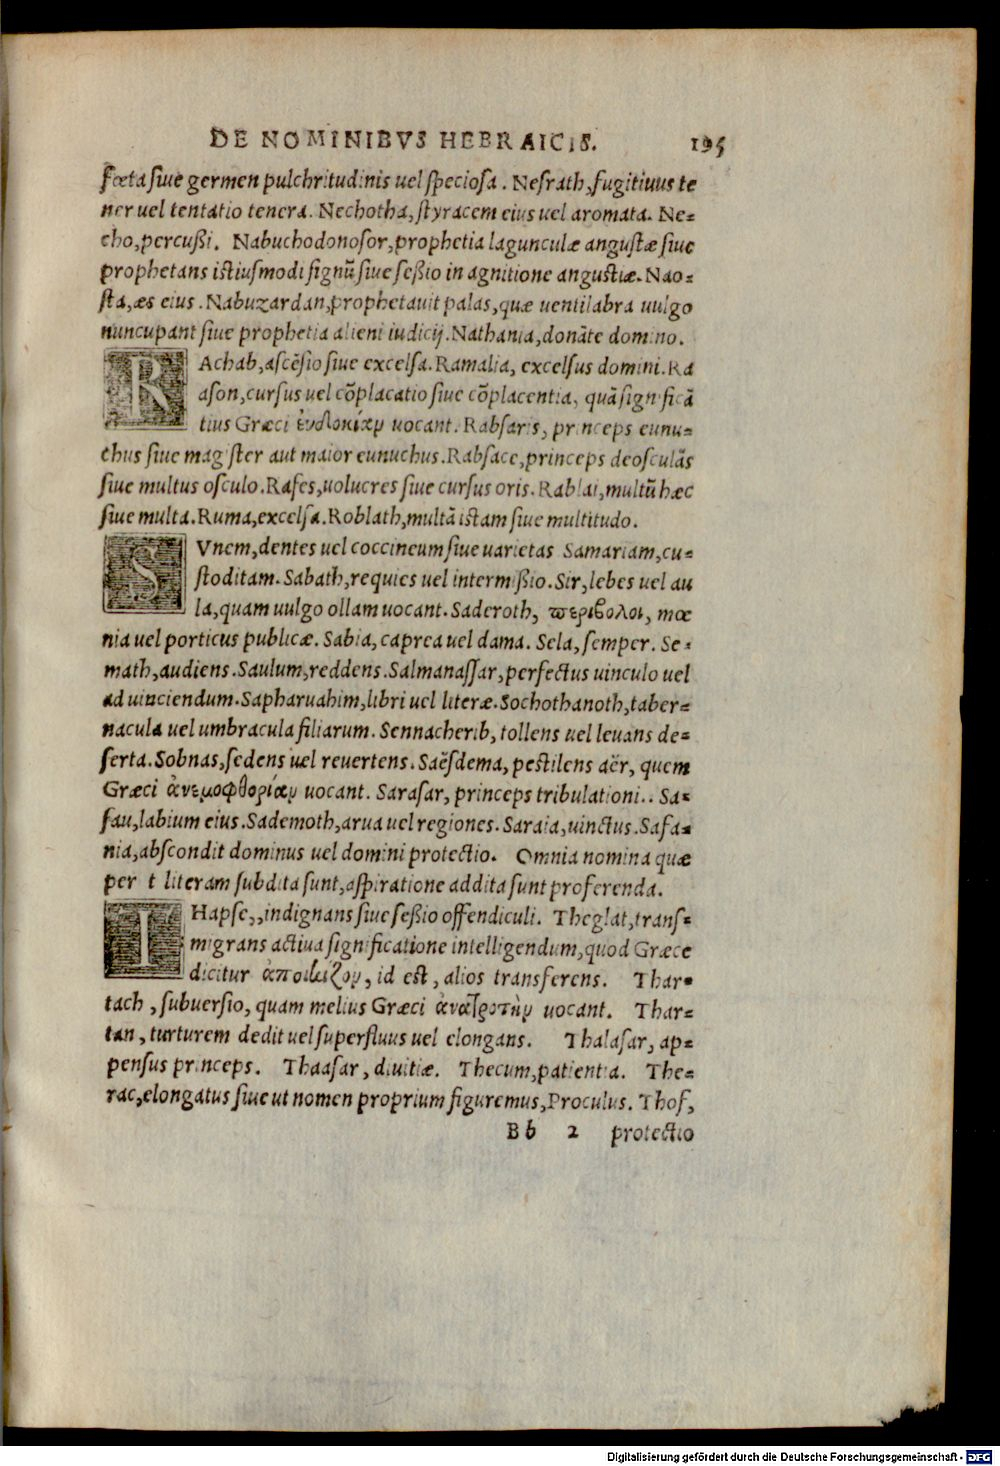 DE NOMINIBVS HEBRAICIS. 195
fœta siue germen pulchritudinis uel speciosa. Nesrath, fugitiuus te
ner uel tentatio tenera. Nechotha, styracem eius uel aromata. Ne-
cho, percußi. Nabuchodonosor, prophetia lagunculæ angustæ siue
prophetans istiusmodi signũ siue seßio in agnitione angustiæ. Nao-
sta, æs eius. Nabuzardan, prophetauit palas, quæ uentilabra uulgo
nuncupant siue prophetia alieni iudicij. Nathania, donãte domino.
RAchab, ascẽsio siue excelsa. Ramalia, excelsus domini. Ra
ason, cursus uel cõplacatio siue cõplacentia, quã significã
tius Græci ἐυδοκίαν uocant. Rabsaris, princeps eunu-
chus siue magister aut maior eunuchus. Rabsace, princeps deosculãs
siue multus osculo. Rafes, uolucres siue cursus oris. Rablai, multũ hæc
siue multa. Ruma, excelsa. Roblath, multã istam siue multitudo.
SVnem, dentes uel coccineum siue uarietas Samariam, cu-
stoditam. Sabath, requies uel intermißio. Sir, lebes uel au
la, quam uulgo ollam uocant. Saderoth, περιβολοι, mœ
nia uel porticus publicæ. Sabia, caprea uel dama. Sela, semper. Se-
math, audiens. Saulum, reddens. Salmanassar, perfectus uinculo uel
ad uinciendum. Sapharuahim, libri uel literæ. Sochothanoth, taber-
nacula uel umbracula filiarum. Sennacherib, tollens uel leuans de-
serta. Sobnas, sedens uel reuertens. Saẽsdema, pestilens aër, quem
Græci ἀνεμοφθορίαν uocant. Sarasar, princeps tribulationi.. Sa-
fau, labium eius. Sademoth, arua uel regiones. Saraia, uinctus. Safa-
nia, abscondit dominus uel domini protectio. Omnia nomina quæ
per t literam subdita sunt, aspiratione addita sunt proferenda.
THapse,, indignans siue seßio offendiculi. Theglat, trans-
migrans actiua significatione intelligendum, quod Græce
dicitur ἀποικίζον, id est, alios transferens. Thar-
tach, subuersio, quam melius Græci ἀνατροπὴν uocant. Thar-
tan, turturem dedit uel superfluus uel elongans. Thalasar, ap-
pensus princeps. Thaasar, diuitiæ. Thecum, patientia. The-
rac, elongatus siue ut nomen proprium figuremus, Proculus. Thof,
Bb 2 protectio
Digitalisierung gefördert durch die Deutsche Forschungsgemeinschaft - DFG